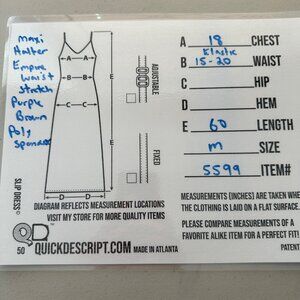 Maxi
Halter
Empire
Waist
Stretch
Purple
Brown
Poly
Spandex
SLIP DRESS
A
A
B
B
C
C
D
D
E
E
ADJUSTABLE
FIXED
DIAGRAM REFLECTS MEASUREMENT LOCATIONS
VISIT MY STORE FOR MORE QUALITY ITEMS
QD
50 QUICKDESCRIPT.COM MADE IN ATLANTA
A 18 CHEST
Elastic
B 15-20 WAIST
C HIP
D HEM
E 60 LENGTH
m SIZE
5599 ITEM#
MEASUREMENTS (INCHES) ARE TAKEN WHEN
THE CLOTHING IS LAID ON A FLAT
SURFACE.
PLEASE COMPARE MEASUREMENTS OF A
FAVORITE ALIKE ITEM FOR A PERFECT FIT!
PATENT